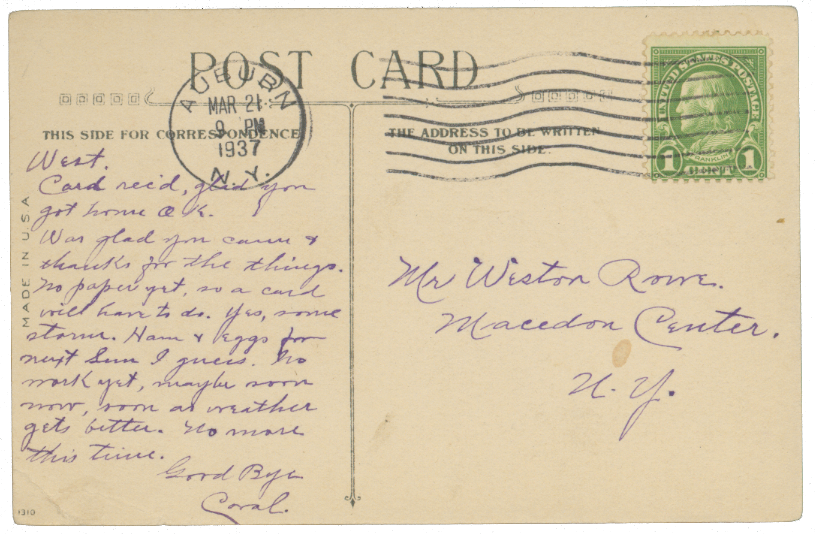 POST CARD
AUBURN
MAR 21
9 PM
1937
N.Y.
UNITED STATES POSTAGE
FRANKLIN
1 1
THIS SIDE FOR CORRESPONDENCE
THE ADDRESS TO BE WRITTEN
ON THIS SIDE.
MADE IN U.S.A
West.
Card rec'd, glad you
got home O.K.
Was glad you came &
thanks for the things.
No paper yet, so a card
will have to do. Yes, some
storm. Ham & Eggs for
next Sun I guess. No
work yet, maybe soon
now, soon as weather
gets better. No more
this time.
Good Bye
Coral.
Mr Weston Rowe.
Macedon Center.
N. Y.
1310